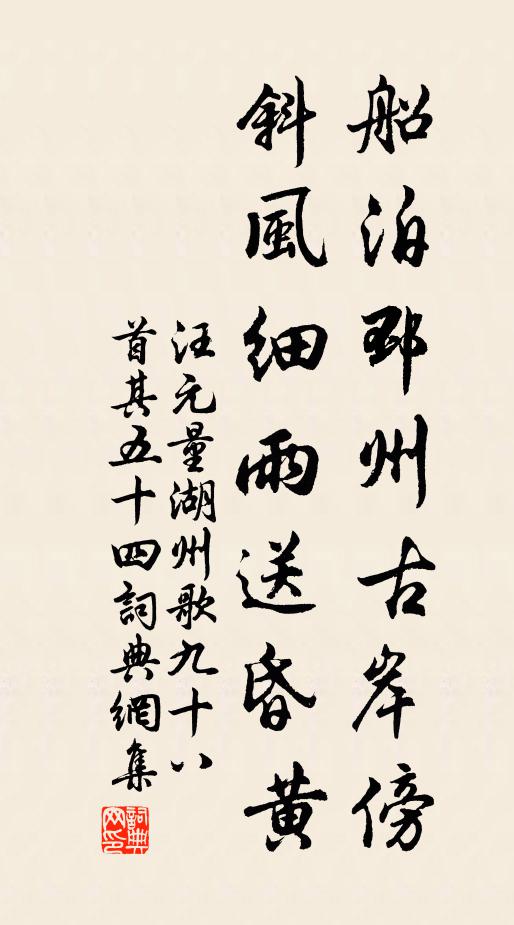 船泊邳州古岸傍
斜風細雨送昏黃
汪元量湖州歌九十八
首其五十四詞典網集
詞典
网印